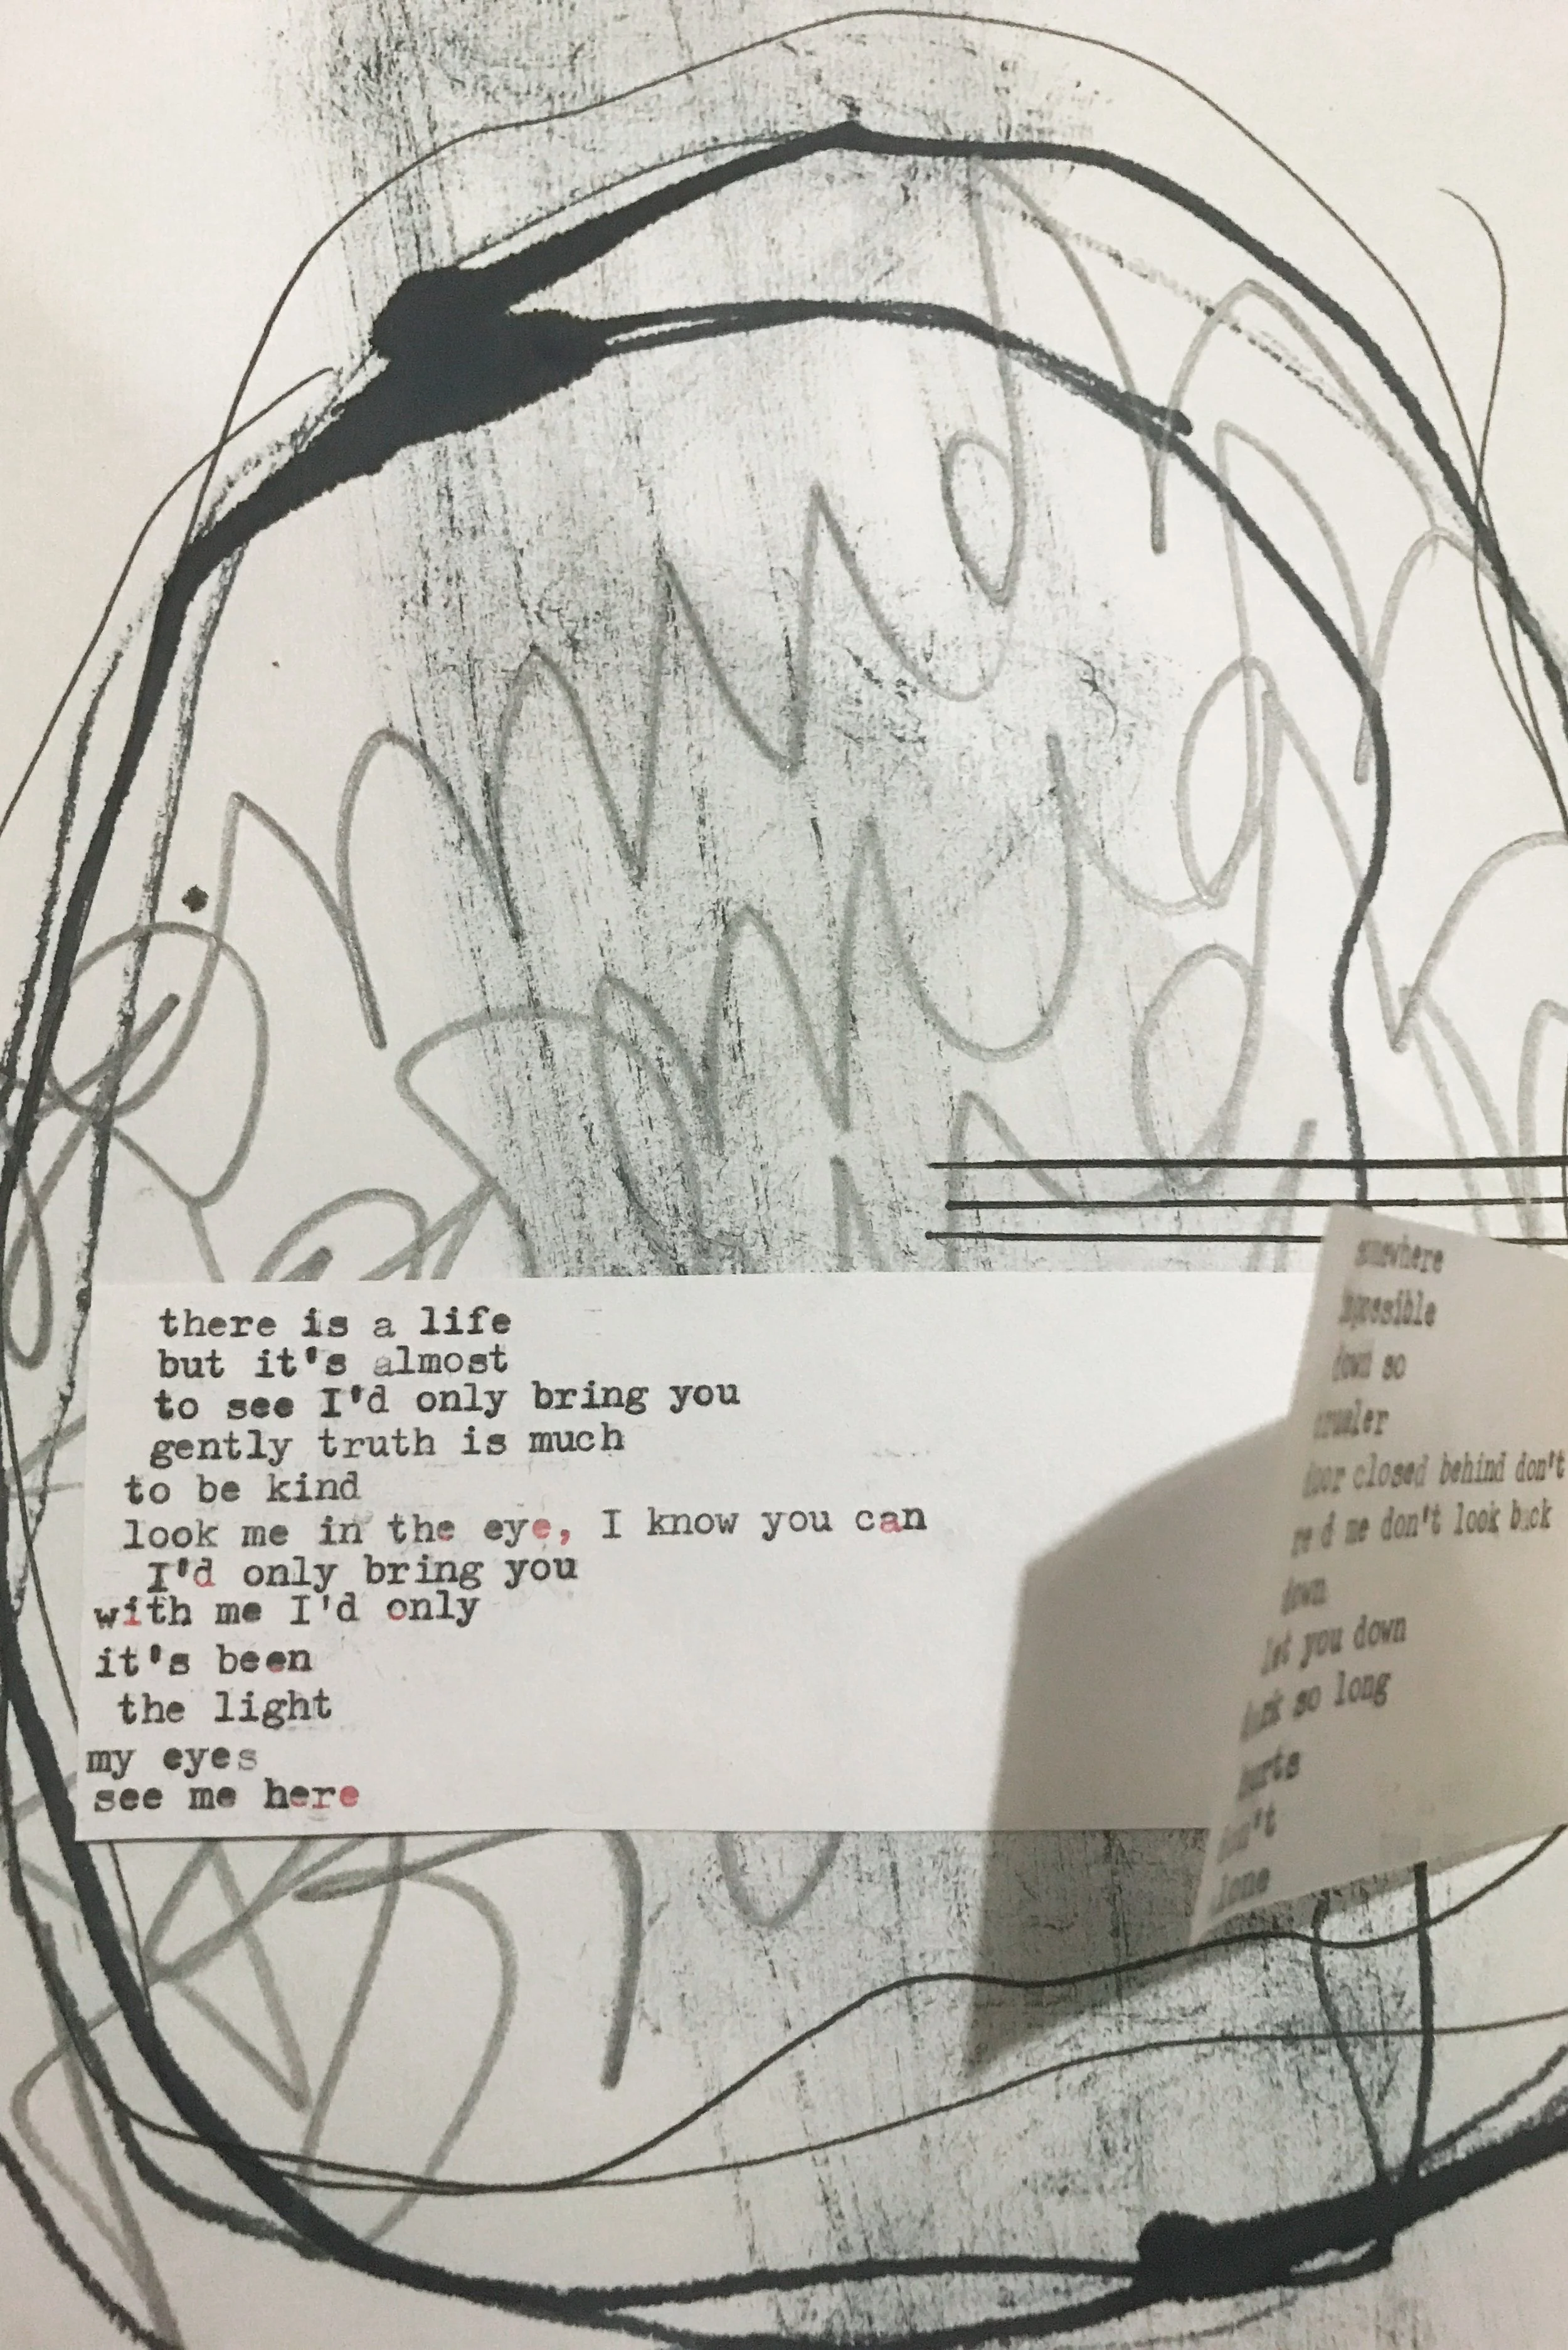 there is a life
but it's almost
to see I'd only bring you
gently truth is much
to be kind
look me in the eye, I know you can
I'd only bring you
with me I'd only
it's been
the light
my eyes
see me here
somewhere
impossible
down so
crueler
door closed behind don't
read me don't look back
down
let you down
dark so long
hurts
don't
alone